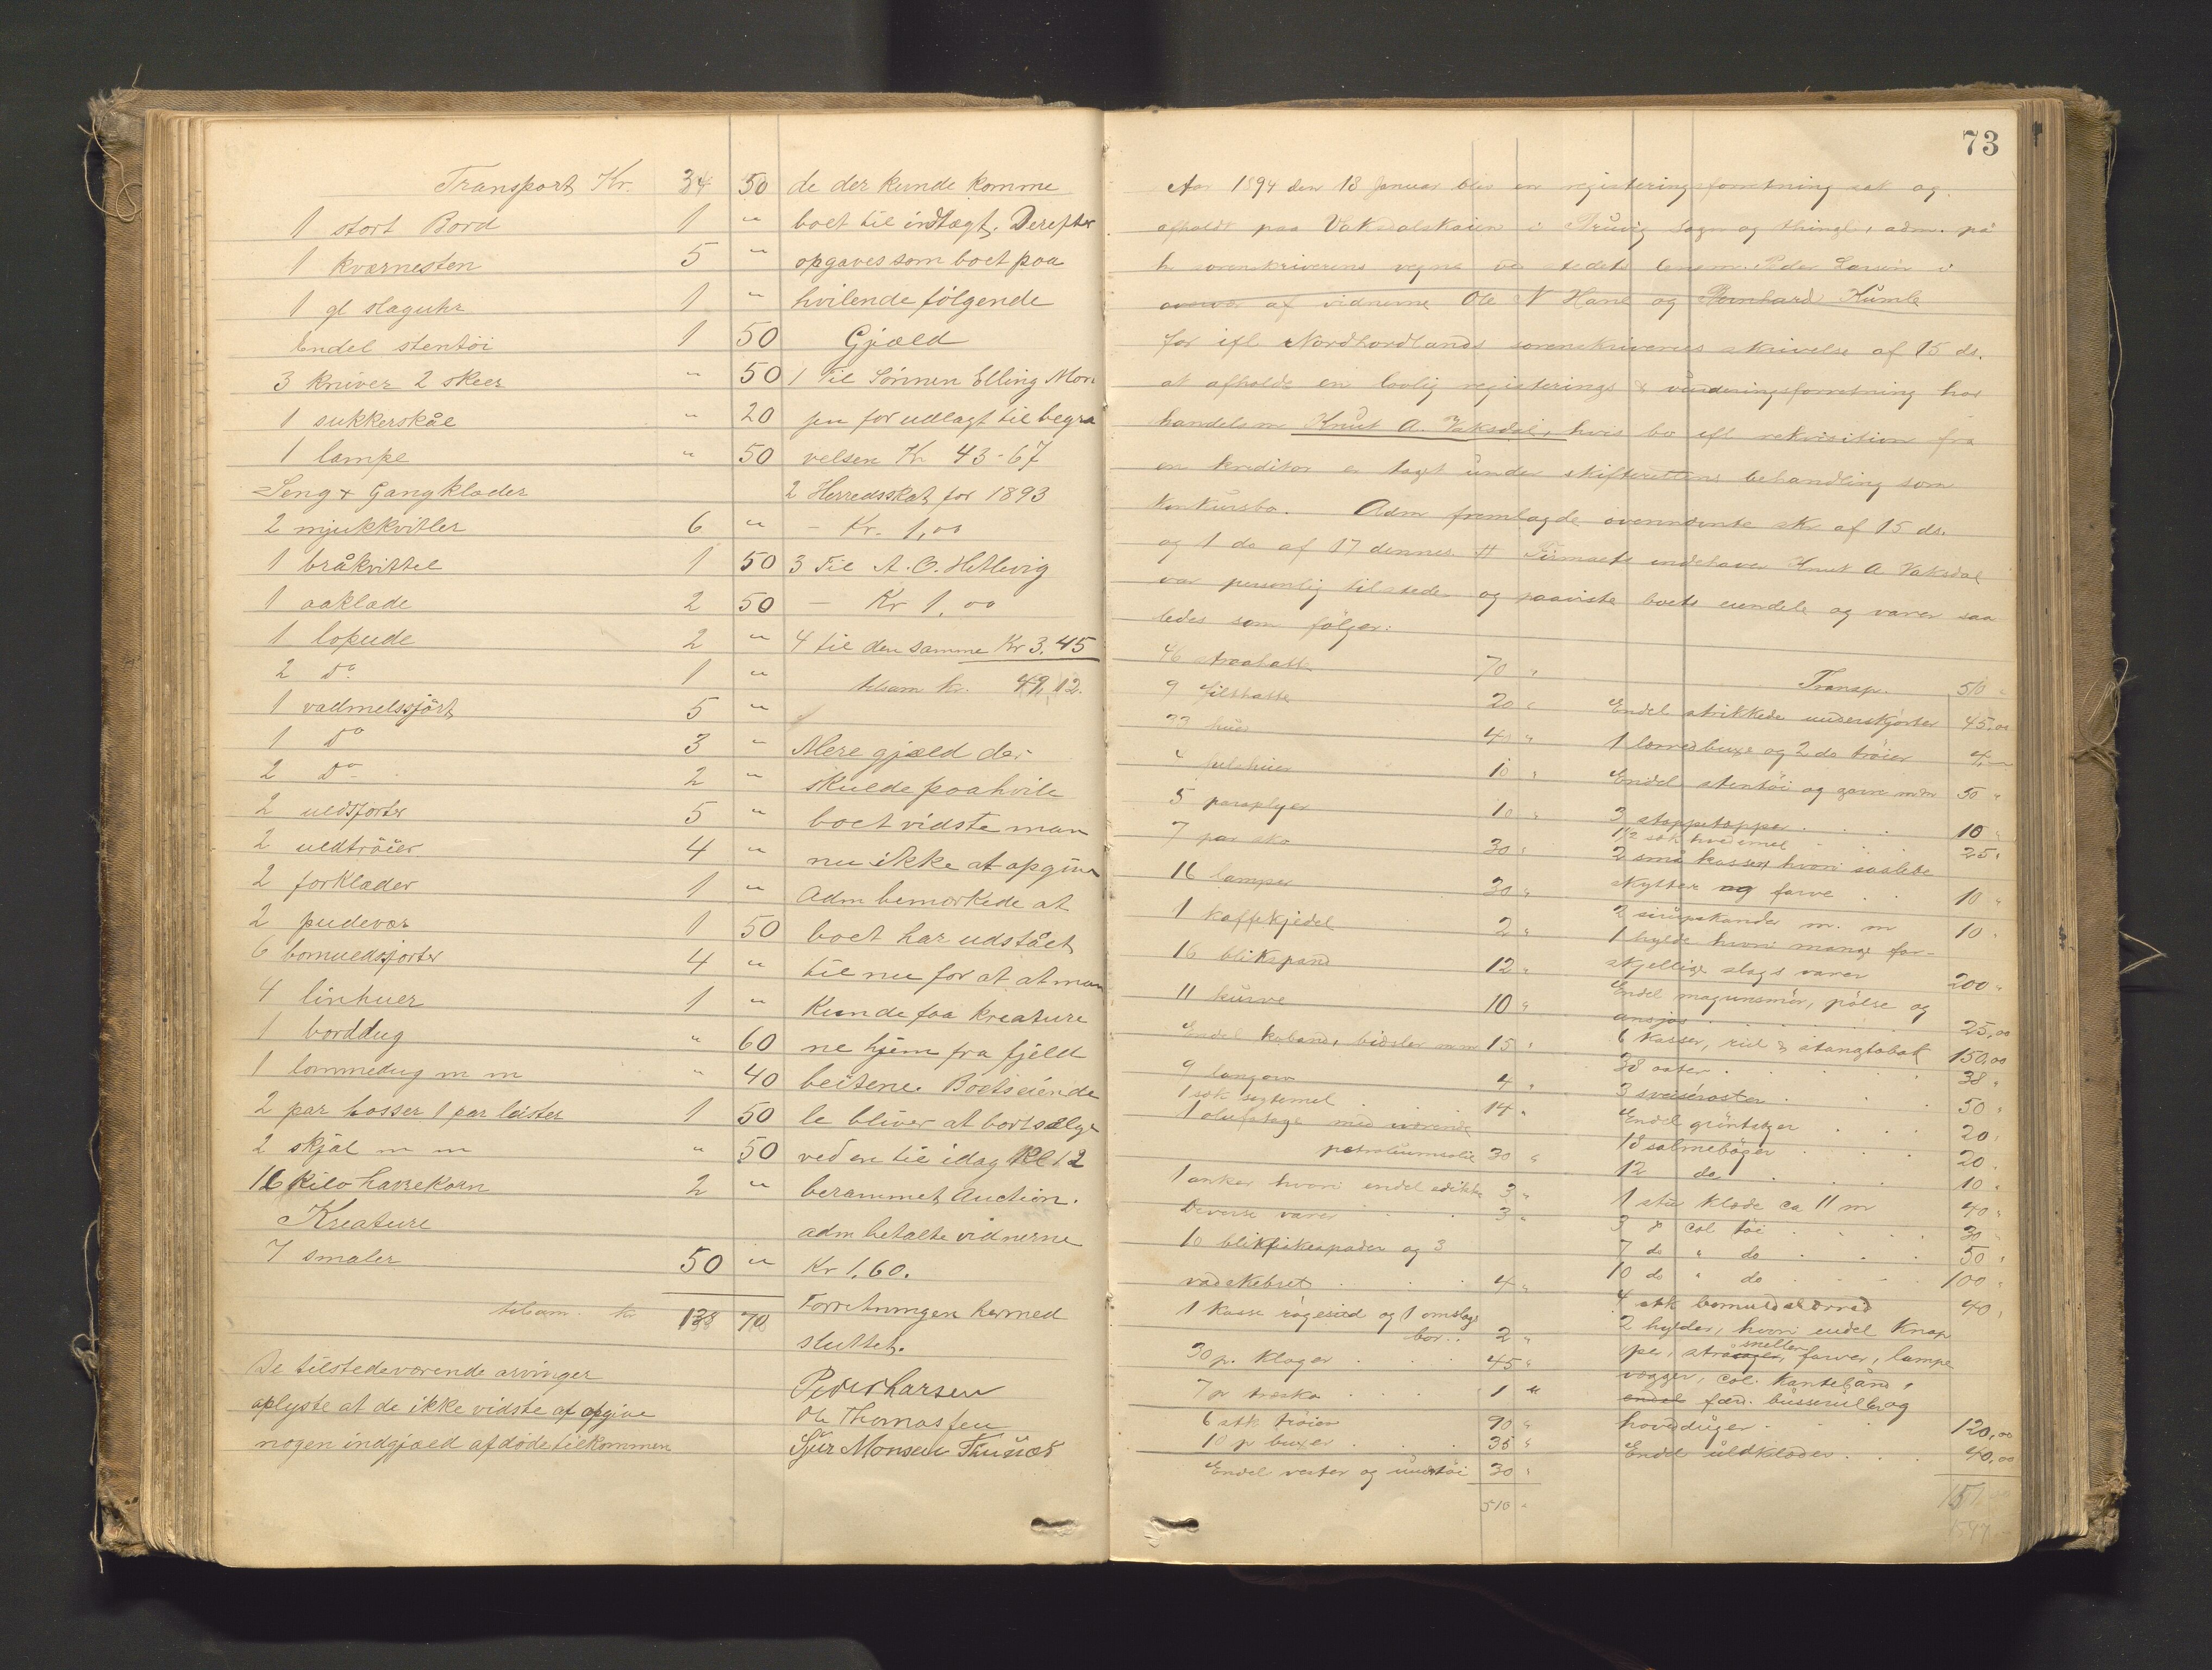 Transport Kr. 34 50
1 stort Bord 1 "
1 kværnesten 5 "
1 gl slaguhr 1 "
Endel stentöi 1 50
3 kniver 2 skeer " 50
1 sukkerskål " 20
1 lampe " 50
Seng & Gangklæder
2 mjukkvitler 6 "
1 bråkvittel 1 50
1 aaklæde 2 50
1 lopude 2 "
2 Do 1 "
1 vadmelssjört 5 "
1 Do 3 "
2 Do 2 "
2 uldsjorter 5 "
2 uldtröier 4 "
2 forklæder 1 "
2 pudevær 1 50
6 bomuldssjorter 4 "
4 linhuer 1 "
1 borddug " 60
1 lommedug m m " 40
2 par hosser 1 par leister 1 50
2 skjål m m " 50
16 kilo havrekorn 2 "
Kreature
7 smaler 50 "
tilsam. kr 138 70
De tilstedeværende arvinger
oplyste at de ikke vidste at opgive
nogen indgjæld afdöde tilkommen
de der kunde komme
boet til indtægt. Derefter
opgaves som boet paa
hvilende fölgende
Gjæld
1 Til Sönnen Elling Mon
sen for udlagt til begra
velsen Kr 43-67
2 Herredsskat for 1893
- Kr. 1,00
3 Til A. O. Hetlevig
- Kr 1,00
4 til den samme Kr 3.45
tilsam kr. 49,12.
Mere gjæld der
skulde paahvile
boet vidste man
nu ikke at opgive
Adm bemærkede at
boet har udstået
til nu for at at man
kunde faa kreature
ne hjem fra fjeld
beitene. Boets eiende
le bliver at bortsælge
ved en til idag Kl 12
berammet Auction.
adm betalte vidnerne
Kr 1,60.
Forretningen hermed
sluttet.
Peder Larsen
Ole Thomassen
Sjur Monsen Thunæs
73
Aar 1894 den 18 Januar blev en registeringsforretning sat og
afholdt paa Vaksdalskaien i Bruvig Sogn og thingl, adm. på
hr sorenskriverens vegne ved stedets lensm. Peder Larsen i
overvær af vidnerne Ole N Hane og Bernhard Kumle
for ifl Nordhordlands sorenskriveries skrivelse af 15 ds.
at afholde en lovlig registerings & vurderingsforretning hos
handelsm Knut A. Vaksdal, hvis bo ifl rekvisition fra
en kreditor er taget under skifterettens behandling som
Konkursbo. Adm fremlagde ovennævnte skr af 15 ds.
og 1 do af 17 dennes # Firmaets indehaver Knut A Vaksdal
var personlig tilstede og paaviste boets eiendele og varer saa
ledes som fölger:
46 straahatte 70 "
9 filthatte 20 "
33 huer 40 "
10 "
5 paraplyer 10 "
7 par sko 30 "
16 lamper 30 "
1 kaffekjedel 2 "
16 blikspand 12 "
11 kurve 10 "
Endel koband, bidsler m m 15 "
9 4 "
1 sæk sigtemel 14 "
1 oliefatage med værende
petroliumsolie 30 "
1 anker hvori endel edikke 3 "
Diverse varer 3 "
10 blikfiskespader og 3
vaskebret 4 "
1 kasse rögesild og 1 omslags
bor.. 2 "
30 p. klager 45 "
7 pr træsko 1 "
6 stk tröier 90 "
10 p buxer 35 "
Endel vester og undertöi 30 "
510 "
Transp. 510 "
Endel strikkede underskjorter 45,00
1 lærredbuxe og 2 do tröier 4,"
Endel stentöi og garn m m 50 "
3 stoppetapper 10 "
1 1/2 sæk hvedemel 25 "
2 små kasser hvori saalede
skytter og farve 10 "
2 sirupskander m. m 10 "
1 hylde hvori mange for-
skjellige slags varer 200 "
Endel magurismör, pölse og
ansjos 25,00
6 kasser, rul & stangtobak 150,00
38 oster 38 "
3 sveiseroster 50 "
Endel gröntsager 20 "
18 salmebøger 20 "
12 do 10 "
1 stu klæde ca 11 m 40 "
3 & col töi 30 "
7 do " do 50 "
10 do " do 100 "
4 stk bomuldslærred 40 "
2 hylder, hvori endel Knap
per, sneller, farver, lampe
vægger, col. Kantebånd,
endel færd. busseruller og
hoveduger 120,00
Endel uldklæder 40,00